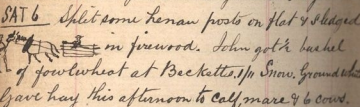 SAT 6 Split some henan posts on flat & sledged
in firewood. John got ½ bushel
of fowlwheat at Becketts. 1/11 Snow. Ground white
Gave hay this afternoon to calf, mare & 6 cows.